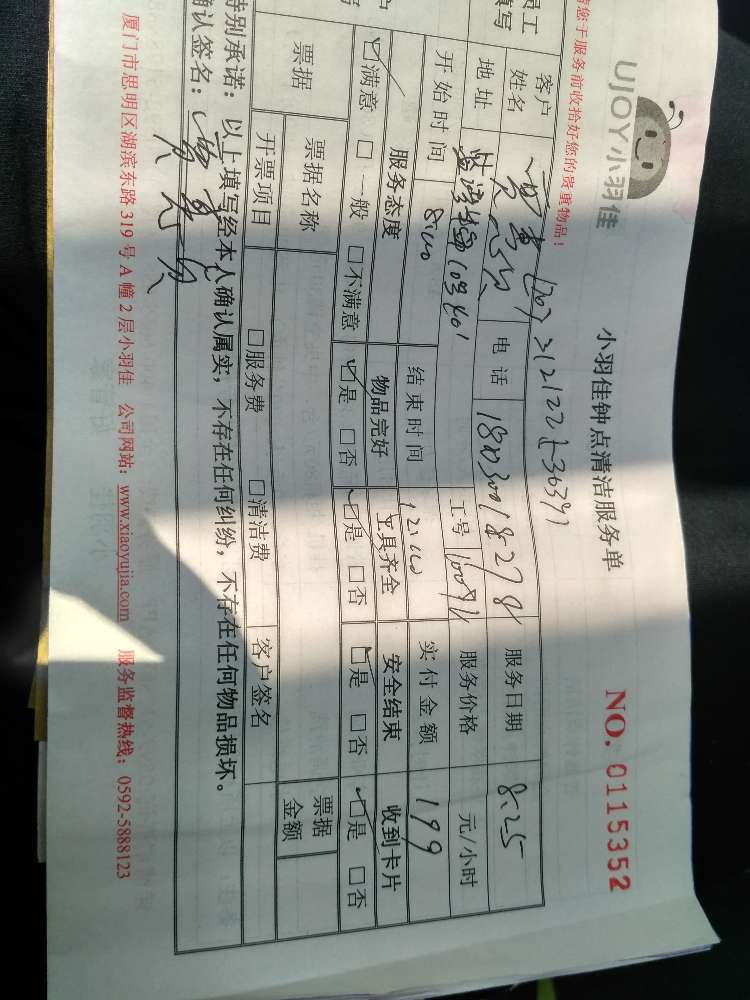 UJOY小羽佳
小羽佳钟点清洁服务单
NO. 0115352
您于服务前收拾好您的贵重物品!
员工
填写
客户
姓名
电话
服务日期 8.25
地址
工号
服务价格 元/小时
开始时间 8:00
结束时间 12:00
实付金额 199
服务态度 物品完好 工具齐全 安全结束 收到卡片
☑满意 □一般 □不满意 ☑是 □否 ☑是 □否 ☑是 □否 ☑是 □否
票据 票据名称 票据
金额
开票项目 □服务费 □清洁费 客户签名
特别承诺:以上填写经本人确认属实,不存在任何纠纷,不存在任何物品损坏。
确认签名:
厦门市思明区湖滨东路319号A幢2层小羽佳 公司网站:www.xiaoyujia.com 服务监督热线:0592-5888123